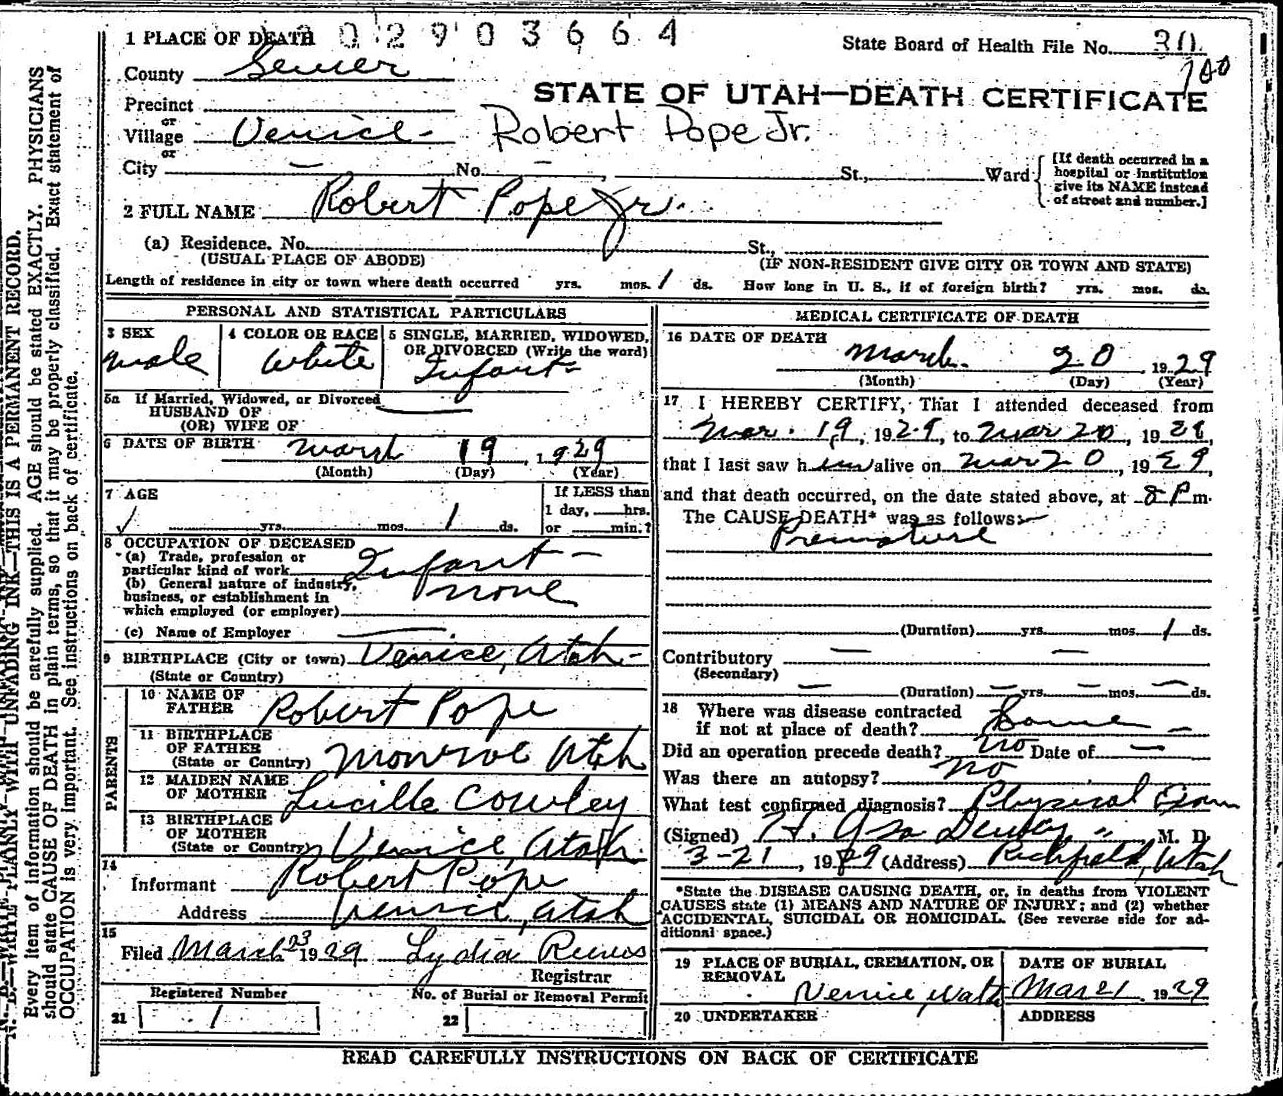 1 PLACE OF DEATH 02903664
State Board of Health File No. 30
100
County Sevier
STATE OF UTAH—DEATH CERTIFICATE
Precinct
or
Village Venice - Robert Pope Jr.
or
City — No. — St., Ward
[If death occurred in a hospital or institution give its NAME instead of street and number.]
2 FULL NAME Robert Pope Jr.
(a) Residence. No. St.,
(USUAL PLACE OF ABODE) (IF NON-RESIDENT GIVE CITY OR TOWN AND STATE)
Length of residence in city or town where death occurred yrs. mos. 1 ds. How long in U. S., if of foreign birth? yrs. mos. ds.
PERSONAL AND STATISTICAL PARTICULARS
3 SEX male
4 COLOR OR RACE White
5 SINGLE, MARRIED, WIDOWED, OR DIVORCED (Write the word) Infant
5a If Married, Widowed, or Divorced
HUSBAND OF
(OR) WIFE OF
6 DATE OF BIRTH March 19, 1929
(Month) (Day) (Year)
7 AGE yrs. mos. 1 ds.
If LESS than 1 day, hrs. or min.?
8 OCCUPATION OF DECEASED
(a) Trade, profession or particular kind of work Infant —
(b) General nature of industry, business, or establishment in which employed (or employer) none
(c) Name of Employer
9 BIRTHPLACE (City or town) Venice, Utah -
(State or Country)
PARENTS
10 NAME OF FATHER Robert Pope
11 BIRTHPLACE OF FATHER (State or Country) Monroe Utah
12 MAIDEN NAME OF MOTHER Lucille Cowley
13 BIRTHPLACE OF MOTHER (State or Country) Venice, Utah.
14
Informant Robert Pope
Address Venice, Utah
15
Filed March 23 1929 Lydia
Registrar
Registered Number No. of Burial or Removal Permit
21 1 22
MEDICAL CERTIFICATE OF DEATH
16 DATE OF DEATH
March. 20 1929
(Month) (Day) (Year)
17 I HEREBY CERTIFY, That I attended deceased from
Mar. 19, 1929, to Mar 20, 1929,
that I last saw him alive on Mar 20, 1929,
and that death occurred, on the date stated above, at 8 P m.
The CAUSE DEATH* was as follows:
Premature
(Duration) yrs. mos. 1 ds.
Contributory — —
(Secondary)
— (Duration) — yrs — mos — ds.
18 Where was disease contracted
if not at place of death? Same —
Did an operation precede death? no Date of —
Was there an autopsy? no
What test confirmed diagnosis? Physical Exam
(Signed) H. Asa Dewey " M. D.
3-21, 1929 (Address) Richfield, Utah
*State the DISEASE CAUSING DEATH, or, in deaths from VIOLENT
CAUSES state (1) MEANS AND NATURE OF INJURY; and (2) whether
ACCIDENTAL, SUICIDAL OR HOMICIDAL. (See reverse side for ad-
ditional space.)
19 PLACE OF BURIAL, CREMATION, OR REMOVAL Venice, Utah
DATE OF BURIAL Mar 21 1929
20 UNDERTAKER ADDRESS
READ CAREFULLY INSTRUCTIONS ON BACK OF CERTIFICATE
N. B.—WRITE PLAINLY WITH UNFADING INK—THIS IS A PERMANENT RECORD.
Every item of information should be carefully supplied. AGE should be stated EXACTLY. PHYSICIANS
should state CAUSE OF DEATH in plain terms, so that it may be properly classified. Exact statement of
OCCUPATION is very important. See instructions on back of certificate.